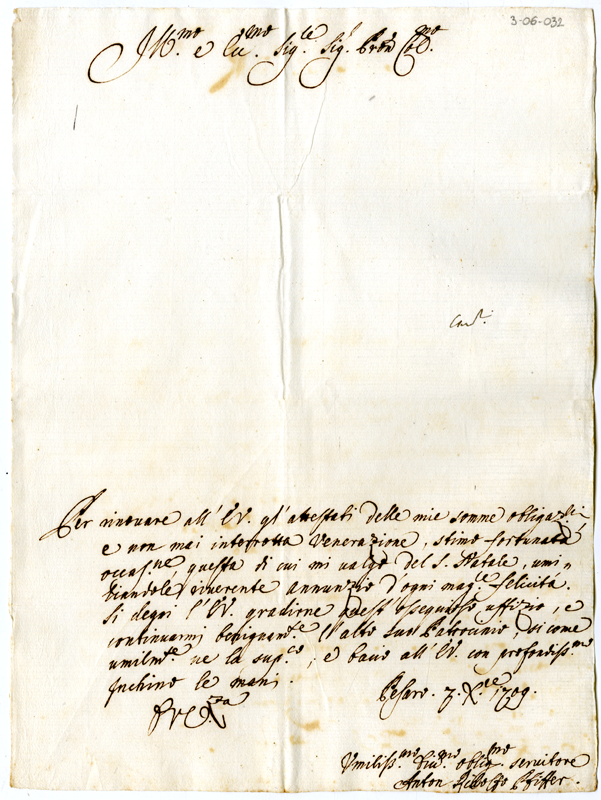 3-06-032
Ill.mo e Rev.mo Sig.re Sig.r Pron Col.mo
Card.
Per rinovare all'EV. gl'attestati delle mie somme obligaz.ni
e non mai interrotta Venerazione, stimo fortunata
occas.ne questa di cui mi valgo del S. Natale, umi-
liandole riverente annunzio d'ogni mag.re felicità.
Si degni l'EV. gradirne quest'ossequioso uffizio, e
continuarmi benignam.te l'alto suo Patrocinio, si come
umilm.te ne la sup.co, e bacio all'EV. con profondiss.mo
Inchino le mani.
Pesaro. 7. X.bre 1709.
Umiliss.mo obblig.mo servitore
Anton Pfiffer.